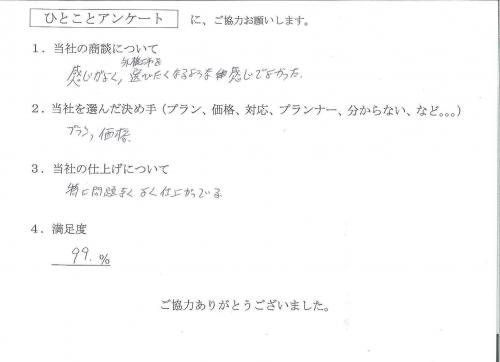 ひとことアンケート に、ご協力お願いします。
1．当社の商談について
感じがよく、選びたくなるような感じでよかった。
2．当社を選んだ決め手（プラン、価格、対応、プランナー、分からない、など。。。）
プラン、価格
3．当社の仕上げについて
特に問題なくよく仕上がっている
4．満足度
99.%
ご協力ありがとうございました。